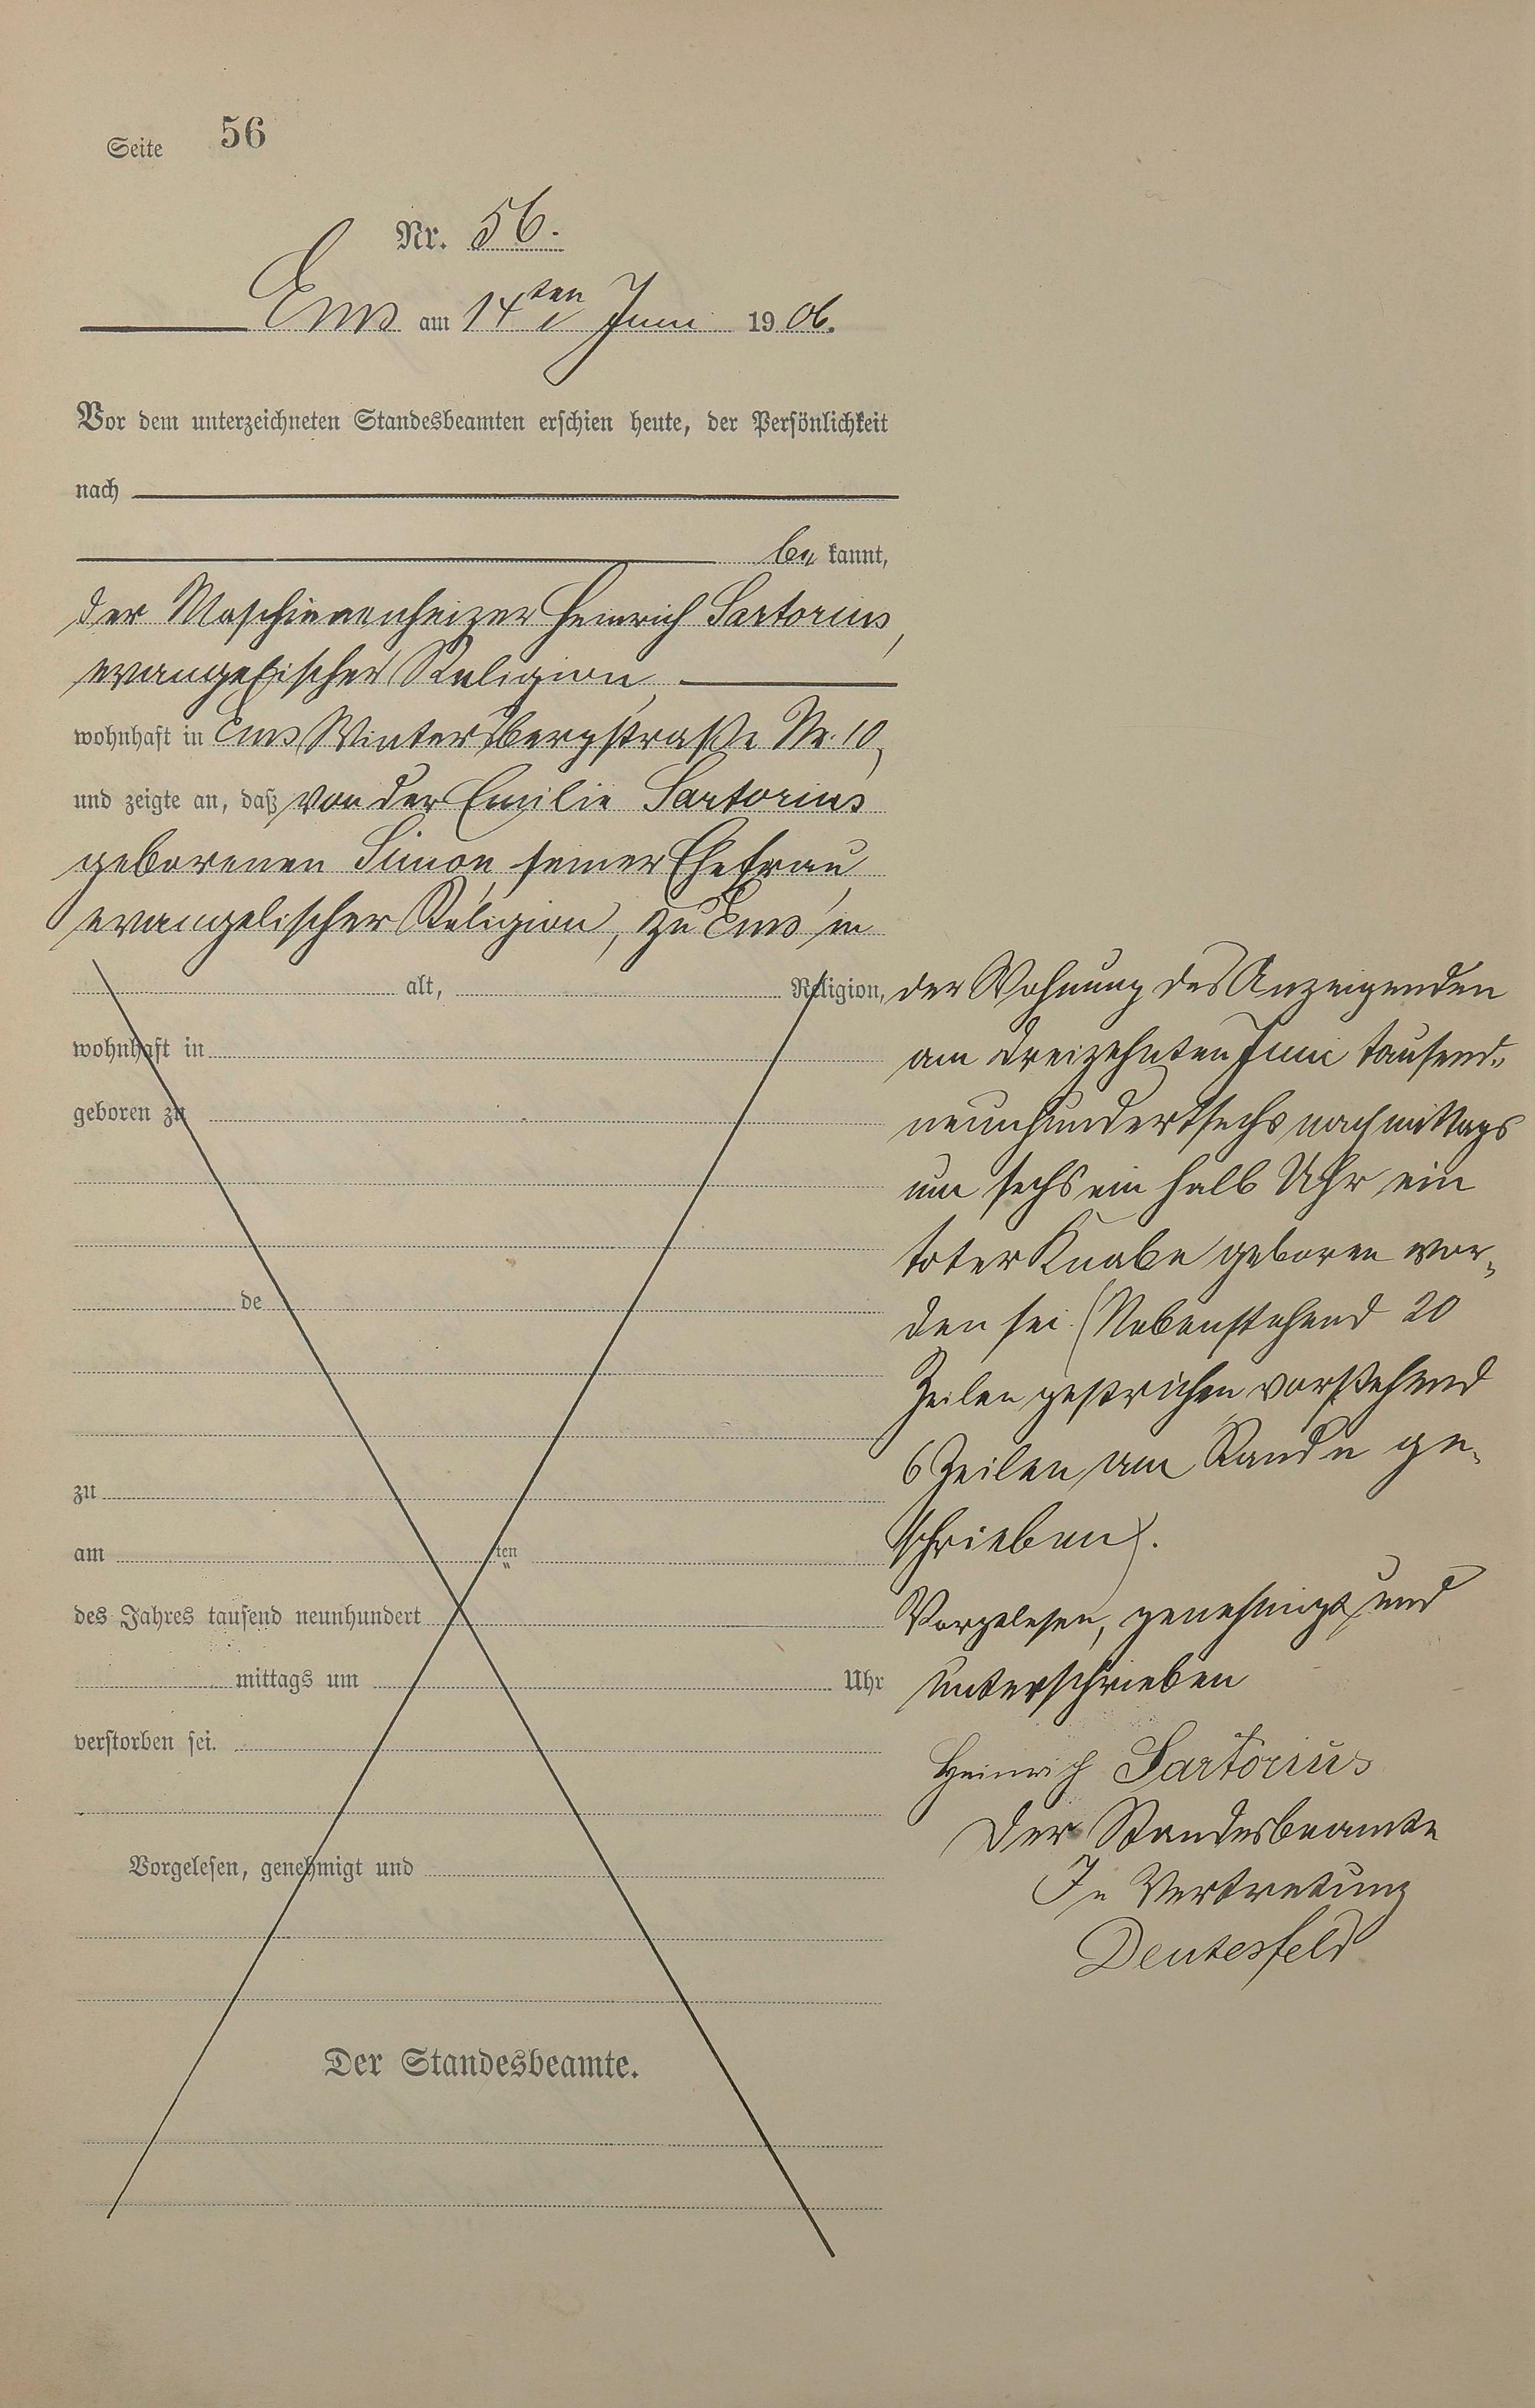 Seite 56
Nr. 56.
Ems am 14ten Juni 1906.
Vor dem unterzeichneten Standesbeamten erschien heute, der Persönlichkeit
nach
be kannt,
der Maschinenheizer Heinrich Sartorius,
evangelischer Religion,
wohnhaft in Ems Wintersbergstraße Nr. 10,
und zeigte an, daß von der Emilie Sartorius
geborenen Simon, seiner Ehefrau,
evangelischer Religion, zu Ems in
alt, Religion,
der Wohnung des Anzeigenden
wohnhaft in
am dreizehnten Juni tausend„
geboren zu
neunhundertsechs nachmittags
um sechs ein halb Uhr ein
toter Knabe geboren wor„
de
den sei. (Nebenstehend 20
Zeilen gestrichen vorstehend
6 Zeilen am Rande ge„
zu
am ten
schrieben).
des Jahres tausend neunhundert
Vorgelesen, genehmigt und
mittags um Uhr
unterschrieben
verstorben sei.
Heinrich Sartorius
Der Standesbeamte
Vorgelesen, genehmigt und
In Vertretung
Deutesfeld
Der Standesbeamte.